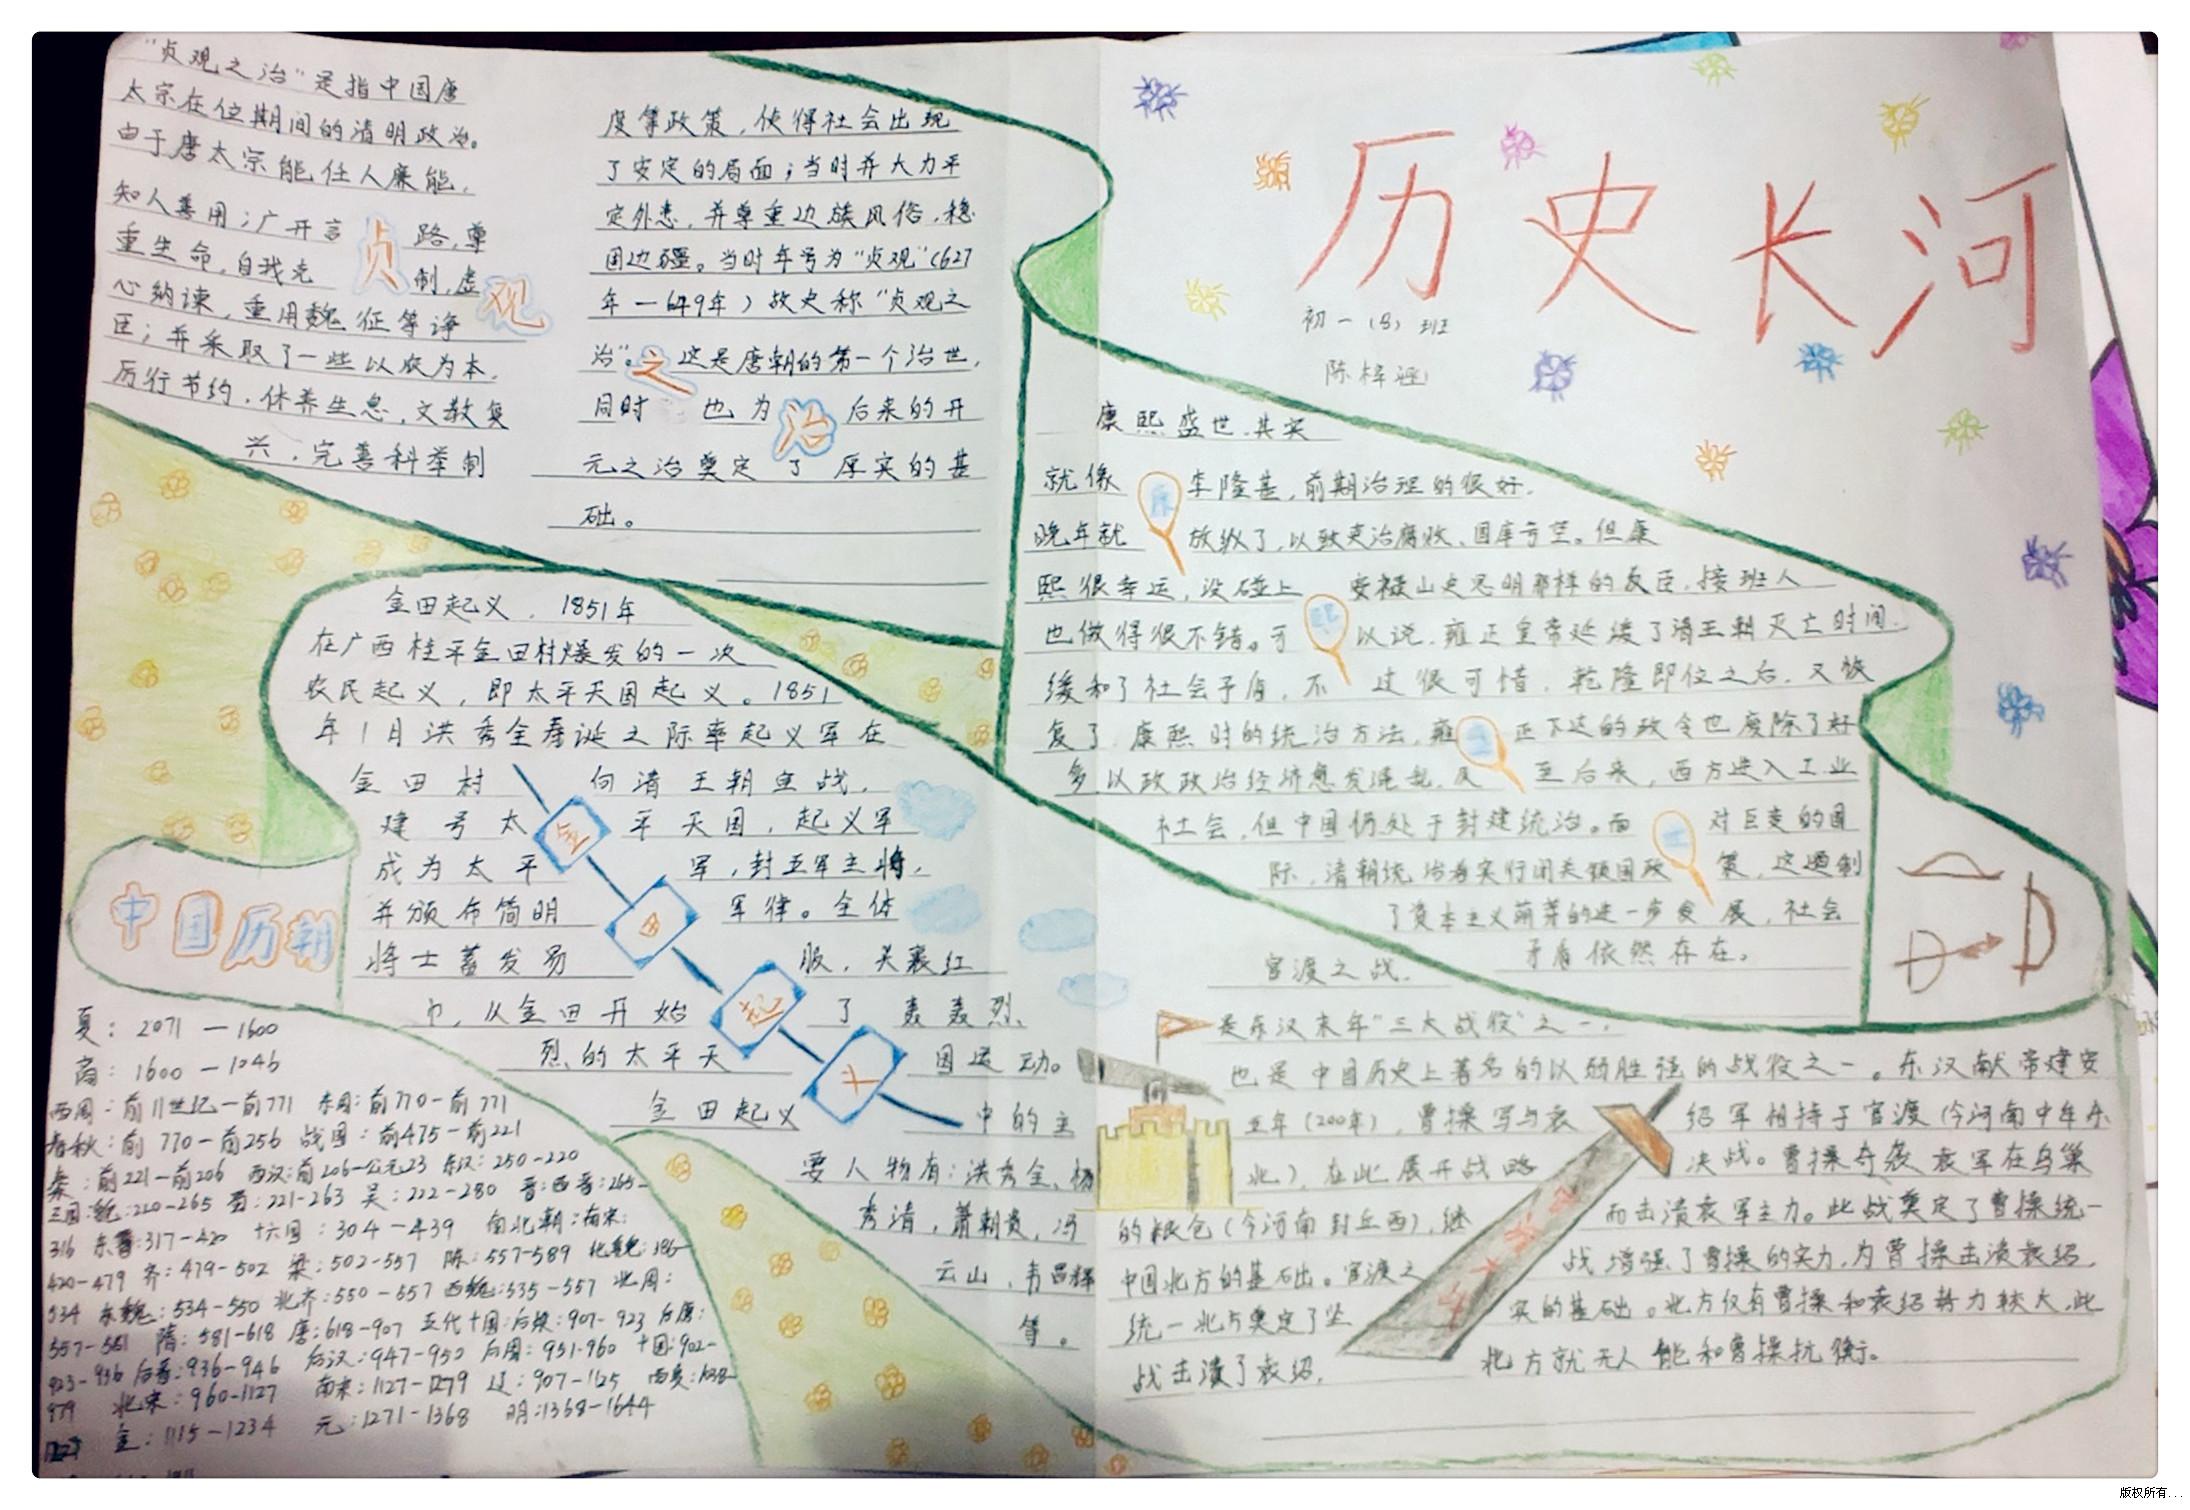 历史长河
初一（8）班
陈梓涵
"贞观之治"是指中国唐
太宗在位期间的清明政治。
由于唐太宗能任人廉能，
知人善用；广开言路，尊
重生命，自我克制，虚
心纳谏，重用魏征等诤
臣；并采取了一些以农为本，
厉行节约，休养生息，文教复
兴，完善科举制
度等政策，使得社会出现
了安定的局面；当时并大力平
定外患，并尊重边族风俗，稳
固边疆。当时年号为"贞观"（627
年—649年）故史称"贞观之
治"。这是唐朝的第一个治世，
同时也为后来的开
元之治奠定了厚实的基
础。
贞观之治
金田起义，1851年
在广西桂平金田村爆发的一次
农民起义，即太平天国起义。1851
年1月洪秀全寿诞之际率起义军在
金田村向清王朝宣战，
建号太平天国，起义军
成为太平军，封五军主将，
并颁布简明军律。全体
将士蓄发易服，头裹红
巾，从金田开始了轰轰烈
烈的太平天国运动。
金田起义中的主
要人物有：洪秀全、杨
秀清，萧朝贵，冯
云山，韦昌辉
等。
金田起义
康熙盛世，其实
就像李隆基，前期治理的很好，
晚年就放纵了，以致吏治腐败、国库亏空。但康
熙很幸运，没碰上安禄山史思明那样的反臣，接班人
也做得很不错。可以说，雍正皇帝延缓了清王朝灭亡时间，
缓和了社会矛盾，不过很可惜，乾隆即位之后，又恢
复了康熙时的统治方法，雍正下达的政令也废除了好
多，以致政治经济愈发混乱，及至后来，西方进入工业
社会，但中国仍处于封建统治。而对巨变的国
际，清朝统治者实行闭关锁国政策，这遏制
了资本主义萌芽的进一步发展，社会
矛盾依然存在。
官渡之战，
是东汉末年"三大战役"之一，
也是中国历史上著名的以弱胜强的战役之一。东汉献帝建安
五年（200年），曹操军与袁绍军相持于官渡（今河南中牟东
北），在此展开战略决战。曹操奇袭袁军在乌巢
的粮仓（今河南封丘西），继而击溃袁军主力。此战奠定了曹操统一
中国北方的基础。官渡之战增强了曹操的实力，为曹操击溃袁绍，
统一北方奠定了坚实的基础。北方仅有曹操和袁绍势力较大，此
战击溃了袁绍，北方就无人能和曹操抗衡。
中国历朝
夏：2071—1600
商：1600—1046
西周：前11世纪—前771 东周：前770—前771
春秋：前770—前256 战国：前475—前221
秦：前221—前206 西汉：前206—公元23 东汉：250-220
三国：魏：220-265 蜀：221-263 吴：222-280 晋：西晋：265-
316 东晋：317-420 十六国：304-439 南北朝：南宋：
420-479 齐：479-502 梁：502-557 陈：557-589 北魏：386-
534 东魏：534-550 北齐：550-557 西魏：535-557 北周：
557-581 隋：581-618 唐：618-907 五代十国：后梁：907-923 后唐：
923-936 后晋：936-946 后汉：947-950 后周：951-960 十国：902-
979 北宋：960-1127 南宋：1127-1279 辽：907-1125 西夏：1038-
1227 金：1115-1234 元：1271-1368 明：1368-1644
版权所有...